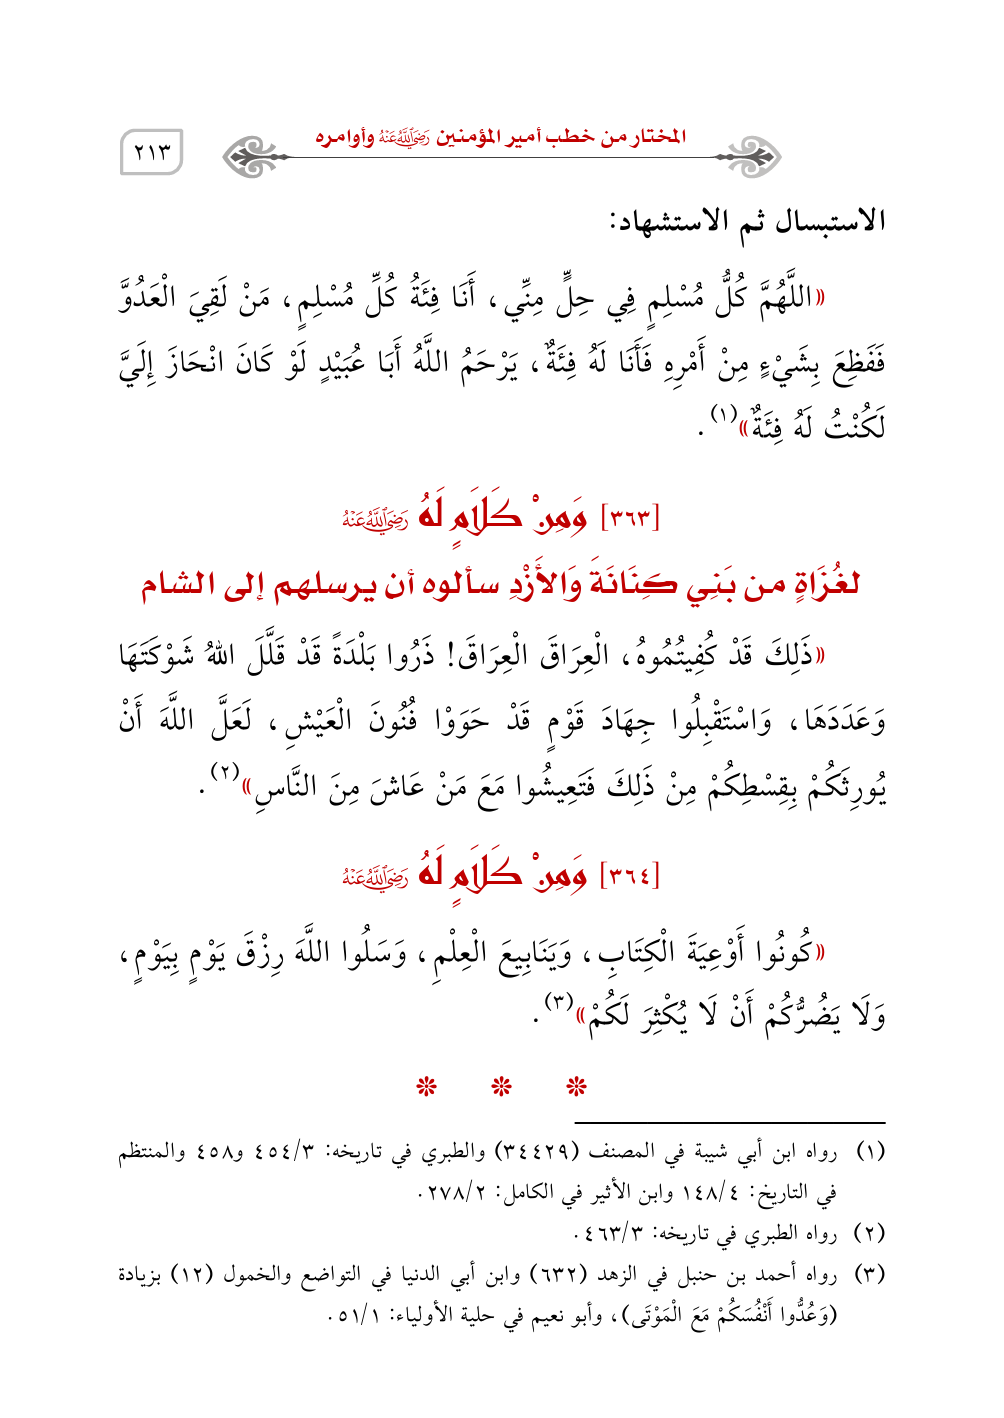 المختار من خطب أمير المؤمنين رَضِيَ اللَّهُ عَنْهُ وأوامره
٢١٣
الاستبسال ثم الاستشهاد:
«اللَّهُمَّ كُلُّ مُسْلِمٍ فِي حِلٍّ مِنِّي، أَنَا فِئَةُ كُلِّ مُسْلِمٍ، مَنْ لَقِيَ الْعَدُوَّ
فَفَظِعَ بِشَيْءٍ مِنْ أَمْرِهِ فَأَنَا لَهُ فِئَةٌ، يَرْحَمُ اللَّهُ أَبَا عُبَيْدٍ لَوْ كَانَ انْحَازَ إِلَيَّ
لَكُنْتُ لَهُ فِئَةٌ»(١).
[٣٦٣] وَمِنْ كَلَامٍ لَهُ رَضِيَ اللَّهُ عَنْهُ
لغُزَاةٍ من بَنِي كِنَانَةَ وَالأَزْدِ سألوه أن يرسلهم إلى الشام
«ذَلِكَ قَدْ كُفِيتُمُوهُ، الْعِرَاقَ الْعِرَاقَ! ذَرُوا بَلْدَةً قَدْ قَلَّلَ اللهُ شَوْكَتَهَا
وَعَدَدَهَا، وَاسْتَقْبِلُوا جِهَادَ قَوْمٍ قَدْ حَوَوْا فُنُونَ الْعَيْشِ، لَعَلَّ اللَّهَ أَنْ
يُورِثَكُمْ بِقِسْطِكُمْ مِنْ ذَلِكَ فَتَعِيشُوا مَعَ مَنْ عَاشَ مِنَ النَّاسِ»(٢).
[٣٦٤] وَمِنْ كَلَامٍ لَهُ رَضِيَ اللَّهُ عَنْهُ
«كُونُوا أَوْعِيَةَ الْكِتَابِ، وَيَنَابِيعَ الْعِلْمِ، وَسَلُوا اللَّهَ رِزْقَ يَوْمٍ بِيَوْمٍ،
وَلَا يَضُرُّكُمْ أَنْ لَا يُكْثِرَ لَكُمْ»(٣).
(١) رواه ابن أبي شيبة في المصنف (٣٤٤٢٩) والطبري في تاريخه: ٤٥٤/٣ و٤٥٨ والمنتظم
في التاريخ: ١٤٨/٤ وابن الأثير في الكامل: ٢٧٨/٢.
(٢) رواه الطبري في تاريخه: ٤٦٣/٣.
(٣) رواه أحمد بن حنبل في الزهد (٦٣٢) وابن أبي الدنيا في التواضع والخمول (١٢) بزيادة
(وَعُدُّوا أَنْفُسَكُمْ مَعَ الْمَوْتَى)، وأبو نعيم في حلية الأولياء: ٥١/١.